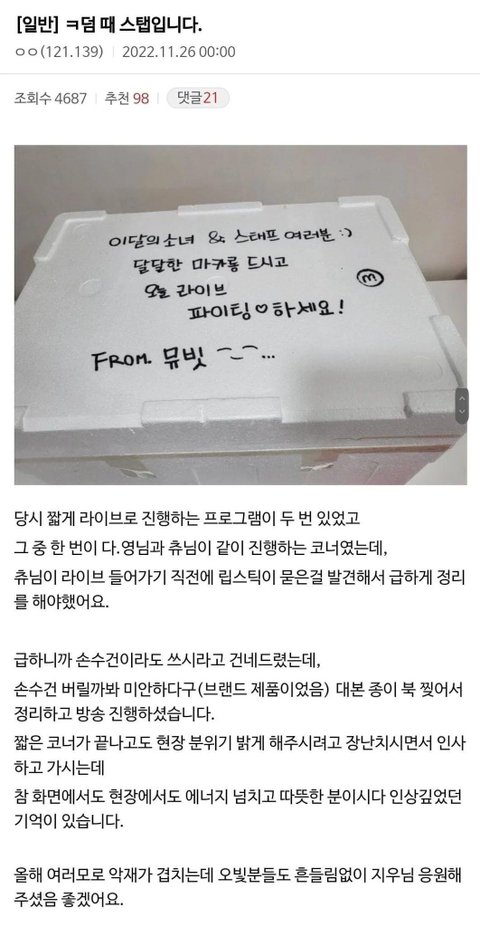 [일반] ㅋ덤 때 스탭입니다.
ㅇㅇ(121.139) | 2022.11.26 00:00
조회수 4687 | 추천 98 | 댓글 21
이달의소녀 & 스태프 여러분 :)
달달한 마카롱 드시고
오늘 라이브
파이팅♡하세요!
m
FROM. 뮤빗 ⌒_⌒...
당시 짧게 라이브로 진행하는 프로그램이 두 번 있었고
그 중 한 번이 다.영님과 츄님이 같이 진행하는 코너였는데,
츄님이 라이브 들어가기 직전에 립스틱이 묻은걸 발견해서 급하게 정리
를 해야했어요.
급하니까 손수건이라도 쓰시라고 건네드렸는데,
손수건 버릴까봐 미안하다구(브랜드 제품이었음) 대본 종이 북 찢어서
정리하고 방송 진행하셨습니다.
짧은 코너가 끝나고도 현장 분위기 밝게 해주시려고 장난치시면서 인사
하고 가시는데
참 화면에서도 현장에서도 에너지 넘치고 따뜻한 분이시다 인상깊었던
기억이 있습니다.
올해 여러모로 악재가 겹치는데 오빛분들도 흔들림없이 지우님 응원해
주셨음 좋겠어요.